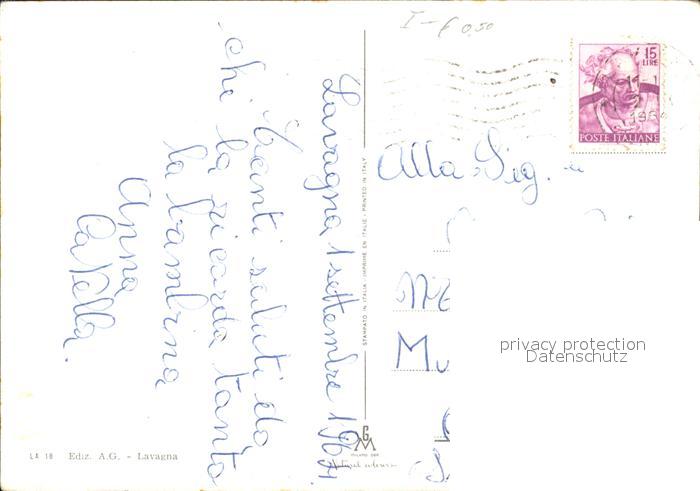 I - € 0,50
15
LIRE
POSTE ITALIANE
Lavagna 1 settembre 1964.
Tanti saluti da
chi la ricorda tanto
la bambina
Anna
Capella.
Alla Sig.
M
privacy protection
Datenschutz
STAMPATO IN ITALIA - IMPRIMÉ EN ITALIE - PRINTED IN ITALY
GM
LA 18 Ediz. A.G. - Lavagna